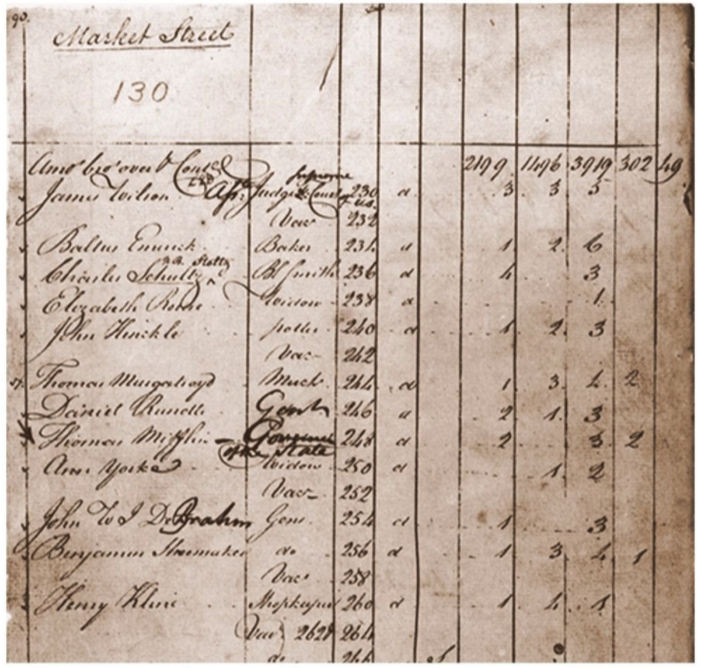 90.
Market Street
130
Amot bro' over 2199 1496 3919 302 49
James Wilson Asst Judge Supreme Court of U.S. 230 a 3 3 5
Vac- 232
Baltus Emrick Baker 234 a 1 2 6
Charles Schultz Bl. Smith 236 a 4 3
Elizabeth Widow 238 a 1
John Hinckle potter 240 a 1 2 3
Vac- 242
Thomas Murgatroyd Mercht 244 a 1 3 4 2
Daniel Rundle Gent 246 a 2 1 3
Thomas Mifflin Governor of the State 248 a 2 3 2
Ann Yorke Widow 250 a 1 2
Vac- 252
John W I De Brahm Gent 254 a 1 3
Benjamin Shoemaker do 256 a 1 3 4 1
Vac- 258
Henry Kline Shopkeeper 260 a 1 4 1
Vac- 262 & 264
do 266